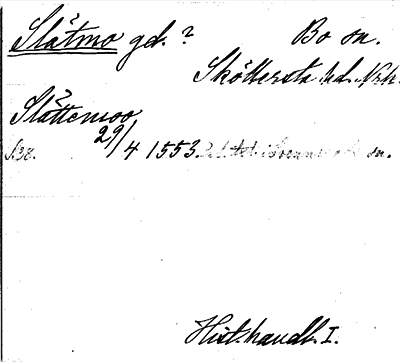 Slätmo gd. ? Bo sn.
Sköllersta hd. Nrk.
Slättemoo
29/4 1553. sn.
Hist. handl. I.